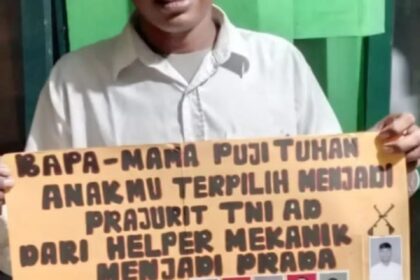 BAPA-MAMA PUJI TUHAN
ANAKMU TERPILIH MENJADI
PRAJURIT TNI AD
DARI HELPER MEKANIK
MENJADI PRADA